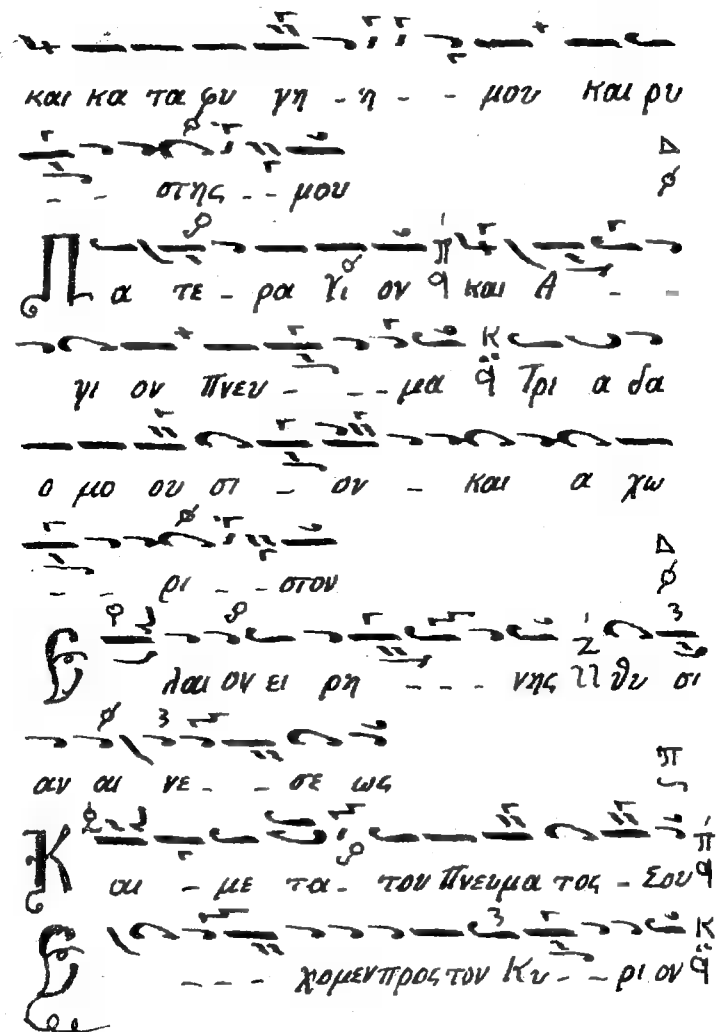 και κα τα φυ γη - η - - μου και ρυ
- - στης - - μου
Π α τε - ρα Υι ον και Α - -
γι ον Πνευ - - - μα Τρι α δα
ο μο ου σι - ον - και α χω
- - ρι - - στον
Ε λαι ον ει ρη - - - νης θυ σι
αν αι νε - - σε ως
Κ αι - με τα - του Πνευμα τος - Σου
Ε - - - χομεν προς τον Κυ - - ρι ον